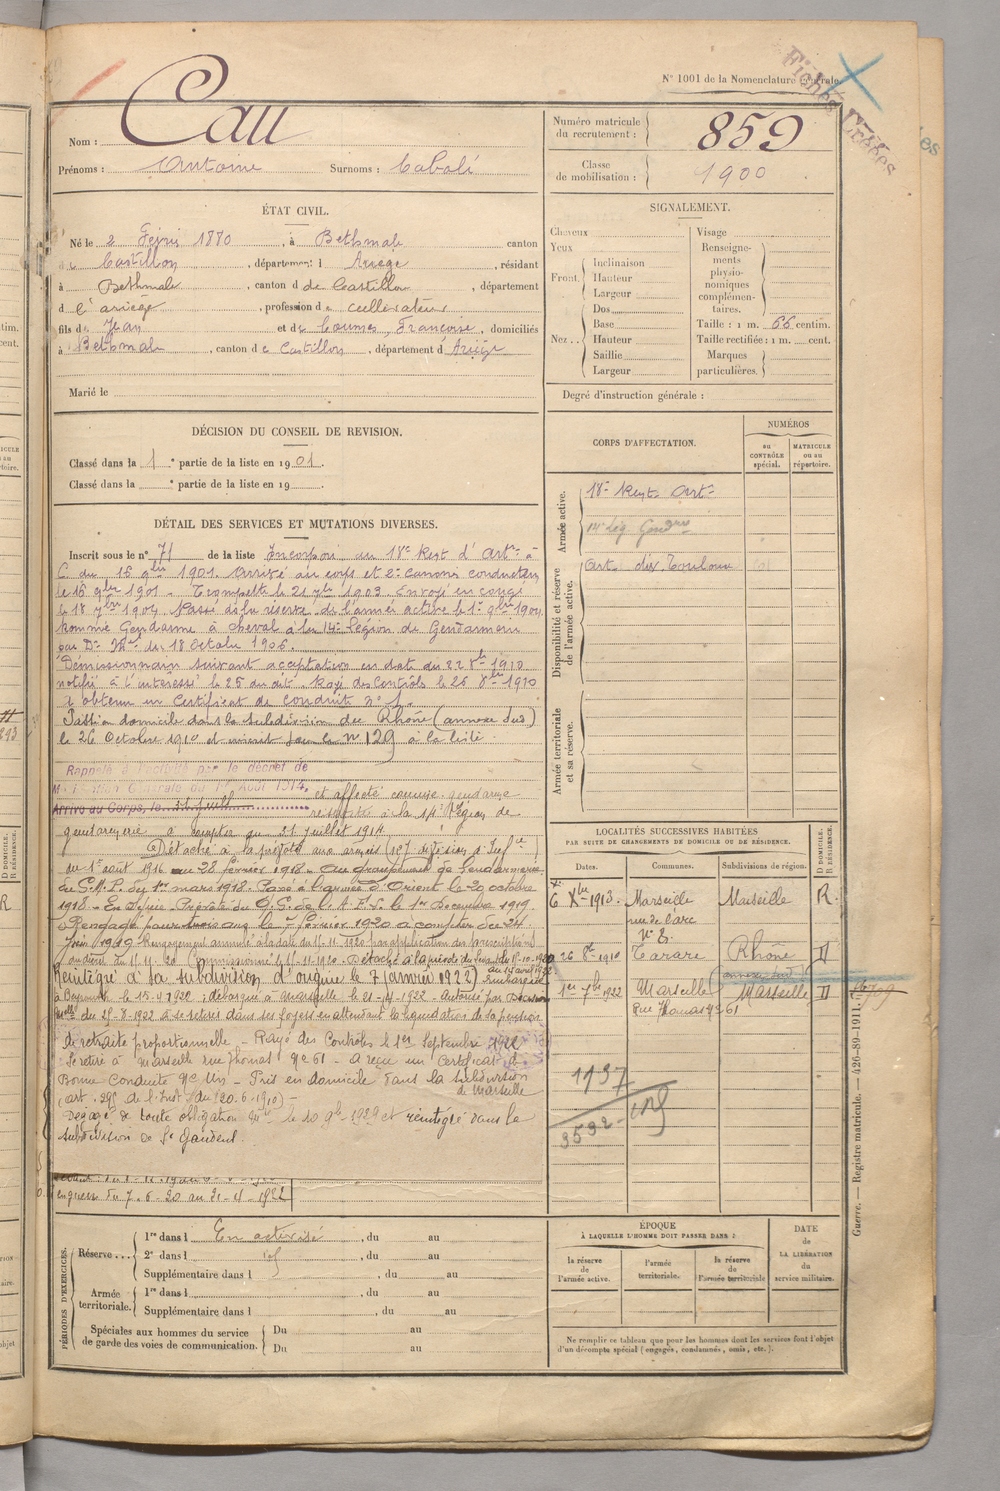 N° 1001 de la Nomenclature générale.
Fiches Créées
Nom : Cau
Prénoms : Antoine Surnoms : Cabalé
Numéro matricule du recrutement : 859
Classe de mobilisation : 1900
ÉTAT CIVIL.
Né le 2 Février 1880, à Bethmale canton
de Castillon, département d Ariège, résidant
à Bethmale, canton d de Castillon, département
d l'ariège, profession de cultivateur
fils de Jean et de Coumes, Françoise, domiciliés
à Bethmale, canton de Castillon, département d'Ariège
Marié le
SIGNALEMENT.
Cheveux
Yeux
Front. Inclinaison
Hauteur
Largeur
Nez .. Dos
Base
Hauteur
Saillie
Largeur
Visage
Renseignements physionomiques complémentaires.
Taille : 1 m. 66 centim.
Taille rectifiée : 1 m. cent.
Marques particulières.
Degré d'instruction générale :
DÉCISION DU CONSEIL DE REVISION.
Classé dans la 1e partie de la liste en 1901.
Classé dans la e partie de la liste en 19 .
CORPS D'AFFECTATION.
NUMÉROS
au CONTRÔLE spécial.
MATRICULE ou au répertoire.
Armée active.
18e Regt Artie
14e Lég. Gendrie
Disponibilité et réserve de l'armée active.
Art. div. Toulouse
Armée territoriale et sa réserve.
DÉTAIL DES SERVICES ET MUTATIONS DIVERSES.
Inscrit sous le n° 71 de la liste Incorporé au 18e Regt d'Artie à
C. du 16 9bre 1901. Arrivé au corps et 2e canonnier conducteur
le 16 9bre 1901. Trompette le 21 7bre 1903. Envoyé en congé
le 18 7bre 1904. Passé dans la réserve de l'armée active le 1er 9bre 1904
Nommé Gendarme à cheval à la 14e Légion de Gendarmerie
par Don Mlle du 18 Octobre 1906.
Démissionnaire suivant acceptation en date du 22 8bre 1910
notifié à l'intéressé le 26 du dit. Rayé des Contrôles le 26 8bre 1910
a obtenu un Certificat de conduite
Passé en domicile dans la subdivision du Rhône (annexe Sud)
le 26 Octobre 1910 et inscrit sous le n° 129 à la liste
Rappelé à l'activité par le décret de
Mobilisation Générale du 1er Août 1914,
Arrivé au Corps, le 31 juillet
et affecté comme gendarme
à la 14e Légion de
gendarmerie à compter du 31 juillet 1914
Détaché à la prévôté aux armées (107 division d'Infie
du 1er août 1916 au 28 février 1918. Au groupement de Gendarmerie
du G.M.P. du 1er mars 1918. Passé à l'armée d'Orient le 20 octobre
1918. En Syrie Prévôté du Q.G. de l'A.F.L. le 1er Decembre 1919
Rengagé pour trois ans le 7 février 1920 à compter du 24
Juin 1919. Rengagement annulé à la date du 15-11-1920 par application des prescriptions
Commissionné le 15-11-1920.
Réintégré à sa subdivision d'origine le 7 janvier 1922 Embarqué
à Beyrouth le 15-4-1922, débarqué à Marseille le 21-4-1922. Autorisé par Décision
Mlle du 25-8-1922 à se retirer dans ses foyers en attendant la liquidation de sa pension
de retraite proportionnelle. Rayé des Contrôles le 1er Septembre 1922
Se retire à Marseille rue Thomas N° 61 - a reçu un Certificat de
Bonne Conduite N° Un - Pris en domicile dans la subdivision
de Marseille
(art. 295 de l'Inst. du 20.6.1910)
Dégagé de toute obligation Mre le 10 9bre 1929 et réintégré dans la
subdivision de St Gaudens.
en guerre du 7-6-20 au 21-4-1922
LOCALITÉS SUCCESSIVES HABITÉES
PAR SUITE DE CHANGEMENTS DE DOMICILE OU DE RÉSIDENCE.
Dates. Communes. Subdivisions de région. D DOMICILE. R RÉSIDENCE.
6 Xbre 1913. Marseille Marseille R.
rue de l'arc
N° 8.
26 8bre 1910 Tarare Rhône D
annexe sud
1er 7bre 1922 Marseille Marseille D
Rue Thomas N° 61
709
1137
3532
PÉRIODES D'EXERCICES.
Réserve ... 1re dans l En activité, du au
2e dans l id, du au
Supplémentaire dans l , du au
Armée territoriale. 1re dans l , du au
Supplémentaire dans l , du au
Spéciales aux hommes du service de garde des voies de communication. Du au
Du au
ÉPOQUE
À LAQUELLE L'HOMME DOIT PASSER DANS :
la réserve de l'armée active.
l'armée territoriale.
la réserve de l'armée territoriale
DATE de LA LIBÉRATION du service militaire.
Ne remplir ce tableau que pour les hommes dont les services font l'objet
d'un décompte spécial (engagés, condamnés, omis, etc.).
Guerre. — Registre matricule. — 426-89-1911.